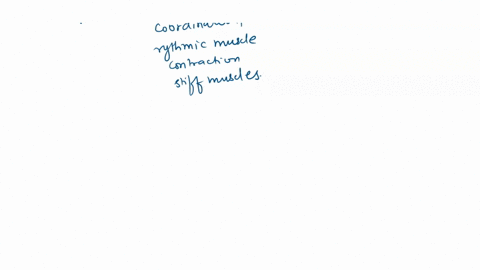 rythmic muscle
contraction
stiff muscles.